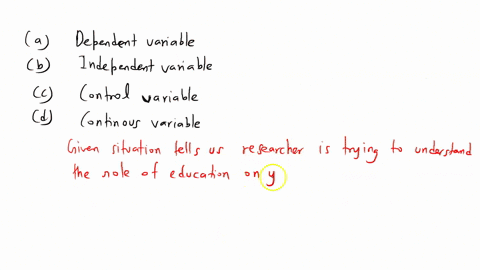 (a) Dependent variable
(b) Independent variable
(c) Control variable
(d) Continous variable
Given situation tells us researcher is trying to understand
the role of education on y